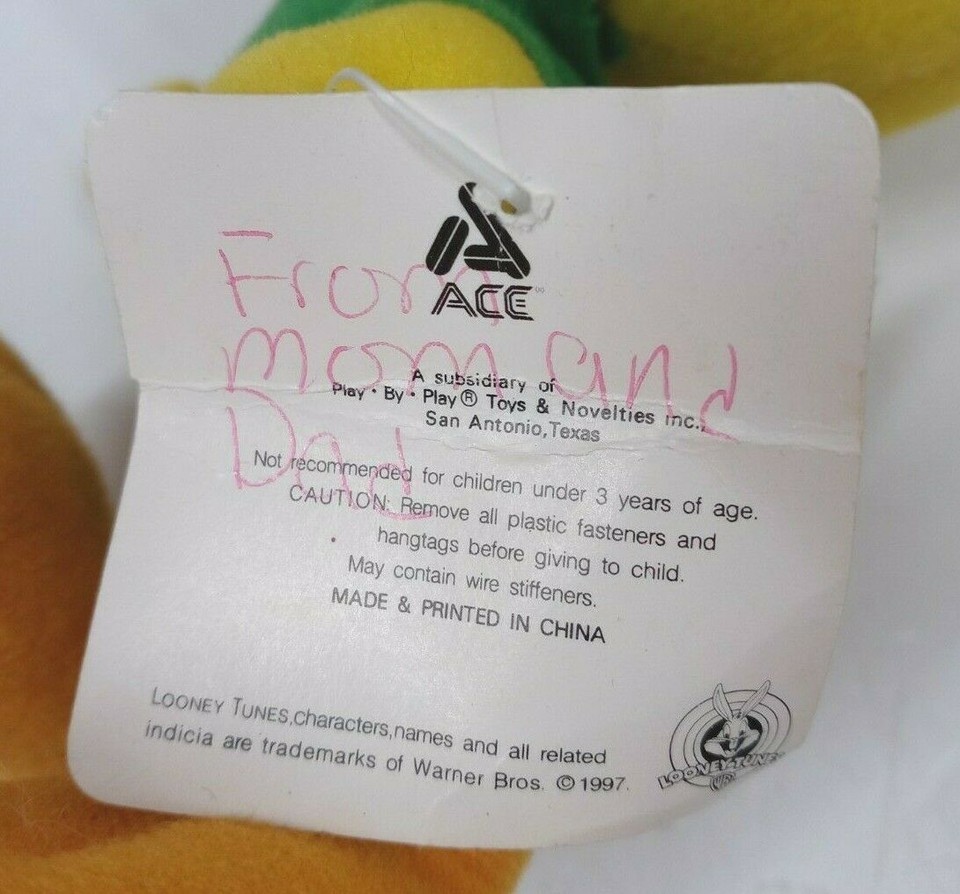 ACE
From
mom and
Dad
A subsidiary of
Play • By • Play® Toys & Novelties Inc.,
San Antonio, Texas
Not recommended for children under 3 years of age.
CAUTION: Remove all plastic fasteners and
hangtags before giving to child.
May contain wire stiffeners.
MADE & PRINTED IN CHINA
LOONEY TUNES, characters, names and all related
indicia are trademarks of Warner Bros. © 1997.
LOONEY TUNES